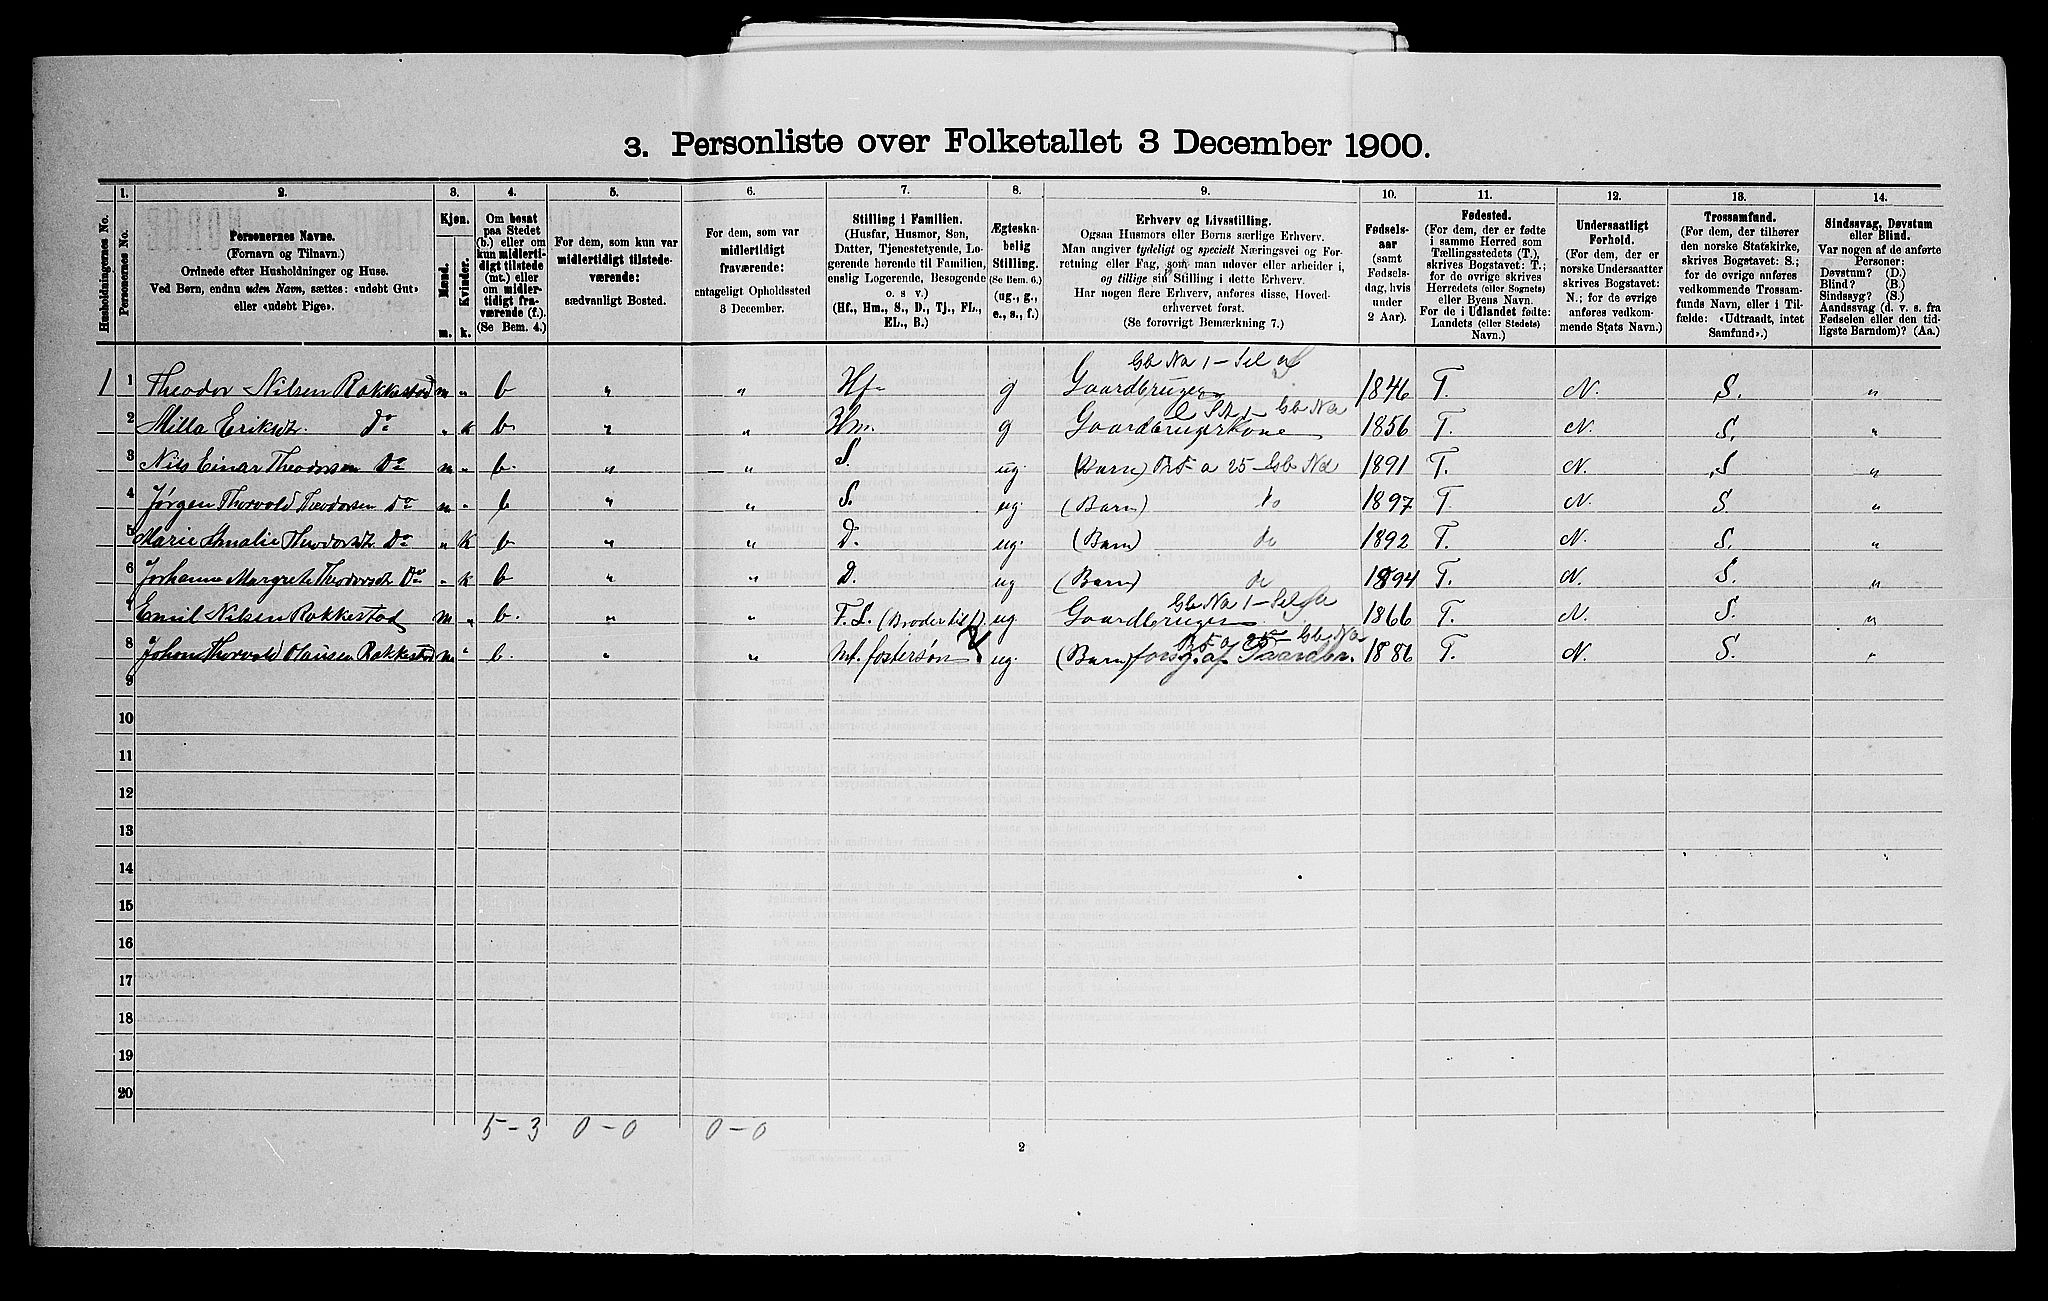 3. Personliste over Folketallet 3 December 1900.
1. 2. 3. 4. 5. 6. 7. 8. 9. 10. 11. 12. 13. 14.
Husholdningernes No.
Personernes No.
Personernes Navne.
(Fornavn og Tilnavn.)
Ordnede efter Husholdninger og Huse.
Ved Børn, endnu uden Navn, sættes: «udøbt Gut»
eller «udøbt Pige».
Kjøn.
Mænd.
Kvinder.
m. k.
Om bosat
paa Stedet
(b.) eller om
kun midlerti-
digt tilstede
(mt.) eller
om midler-
tidigt fra-
værende (f.)
(Se Bem. 4.)
For dem, som kun var
midlertidigt tilstede-
værende:
sædvanligt Bosted.
For dem, som var
midlertidigt
fraværende:
antageligt Opholdssted
3 December.
Stilling i Familien.
(Husfar, Husmor, Søn,
Datter, Tjenestetyende, Lo-
gerende hørende til Familien,
enslig Logerende, Besøgende
o. s v.)
(Hf., Hm., S., D., Tj., FL.,
EL., B.)
Ægteska-
belig
Stilling.
(Se Bem. 6.)
(ug., g.,
e., s., f.)
Erhverv og Livsstilling.
Ogsaa Husmors eller Børns særlige Erhverv.
Man angiver tydeligt og specielt Næringsvei og For-
retning eller Fag, som man udøver eller arbeider i,
og tillige sin Stilling i dette Erhverv.
Har nogen flere Erhverv, anføres disse, Hoved-
erhvervet først.
(Se forøvrigt Bemærkning 7.)
Fødsels-
aar
(samt
Fødsels-
dag, hvis
under
2 Aar).
Fødested.
(For dem, der er fødte
i samme Herred som
Tællingsstedets (T.),
skrives Bogstavet: T.;
for de øvrige skrives
Herredets (eller Sognets)
eller Byens Navn.
For de i Udlandet fødte:
Landets (eller Stedets)
Navn.)
Undersaatligt
Forhold.
(For dem, der er
norske Undersaatter
skrives Bogstavet:
N.; for de øvrige
anføres vedkom-
mende Stats Navn.)
Trossamfund.
(For dem, der tilhører
den norske Statskirke,
skrives Bogstavet: S.;
for de øvrige anføres
vedkommende Trossam-
funds Navn, eller i Til-
fælde: «Udtraadt, intet
Samfund».)
Sindssvag, Døvstum
eller Blind.
Var nogen af de anførte
Personer:
Døvstum? (D.)
Blind? (B.)
Sindssyg? (S.)
Aandssvag (d. v. s. fra
Fødselen eller den tid-
ligste Barndom)? (Aa.)
1 1 Theodor Nilsen Rakkestad m " b " " Hf g Gaardbruger Gb Na 1 – Sel 1846 T. N. S. "
2 Milla Eriksdtr. Do " k b " " Hm. g Gaardbrugerkone Gb Na 1856 T. N. S. "
3 Nils Einar Theodorsen Do m " b. " " S. ug. (Barn) a 25 Gb Na 1891 T. N. S "
4 Jørgen Thorvald Theodorsen Do m " b " " S. ug. (Barn) do 1897 T. N. S. "
5 Marie Amalie Theodorsdtr Do " k b " " D. ug. (Barn) do 1892 T. N. S. "
6 Johanne Margrete Theodorsdtr Do " k b " " D. ug (Barn) do 1894 T. N. S. "
7 Emil Nilsen Rakkestad m " b. " " F. L. (Broder til f) ug Gaardbruger Gb Na 1 – Sel 1866 T. N. S. "
8 Johan Thorvald Olausen Rakkestad m " b. " " fostersøn ug. (Barn) forsg. af Gaardbr. Gb Na 1886 T. N. S. "
9
10
11
12
13
14
15
16
17
18
19
20
5 – 3 0 – 0 0 – 0
2